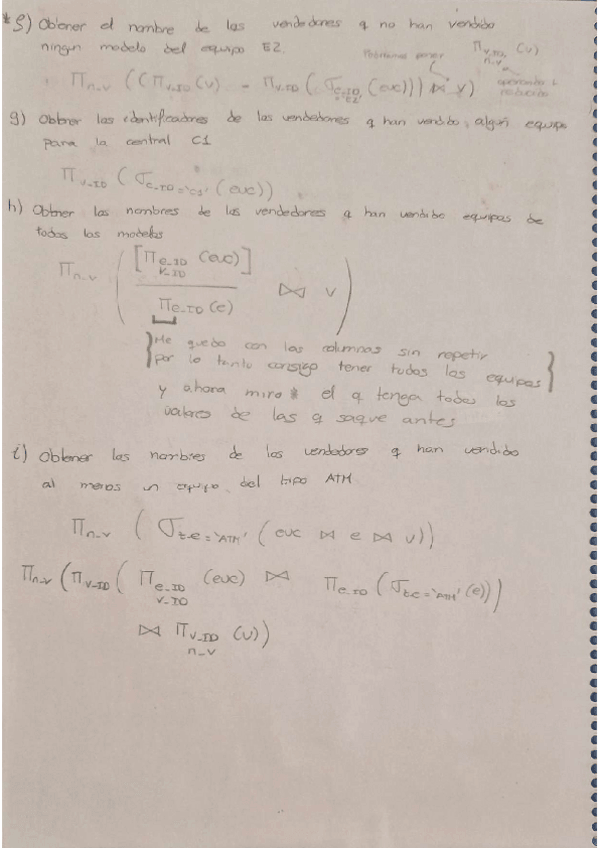 *f) Obtener el nombre de los vendedores q no han vendido
ningún modelo del equipo E2.
Podríamos poner Π v_ID, n_v (v)
Π n_v ((Π v_ID (v) - Π v_ID (σ e_ID='E2' (evc))) ⋈ v)
g) Obtener los identificadores de los vendedores q han vendido algún equipo
para la central C1
Π v_ID (σ c_ID='C1' (evc))
h) Obtner los nombres de los vendedores q han vendido equipos de
todos los modelos
Π n_v ( [Π e_ID, v_ID (evc)] / Π e_ID (e) ⋈ v )
}Me quedo con las columnas sin repetir
por lo tanto consigo tener todos los equipos}
y ahora miro el q tenga todos los
valores de las q saque antes
i) Obtener los nombres de los vendedores q han vendido
al menos un equipo del tipo ATM
Π n_v (σ t_e='ATM' (evc ⋈ e ⋈ v))
Π n_v (Π v_ID (Π e_ID, v_ID (evc) ⋈ Π e_ID (σ t_e='ATM' (e)))
⋈ Π v_ID, n_v (v))